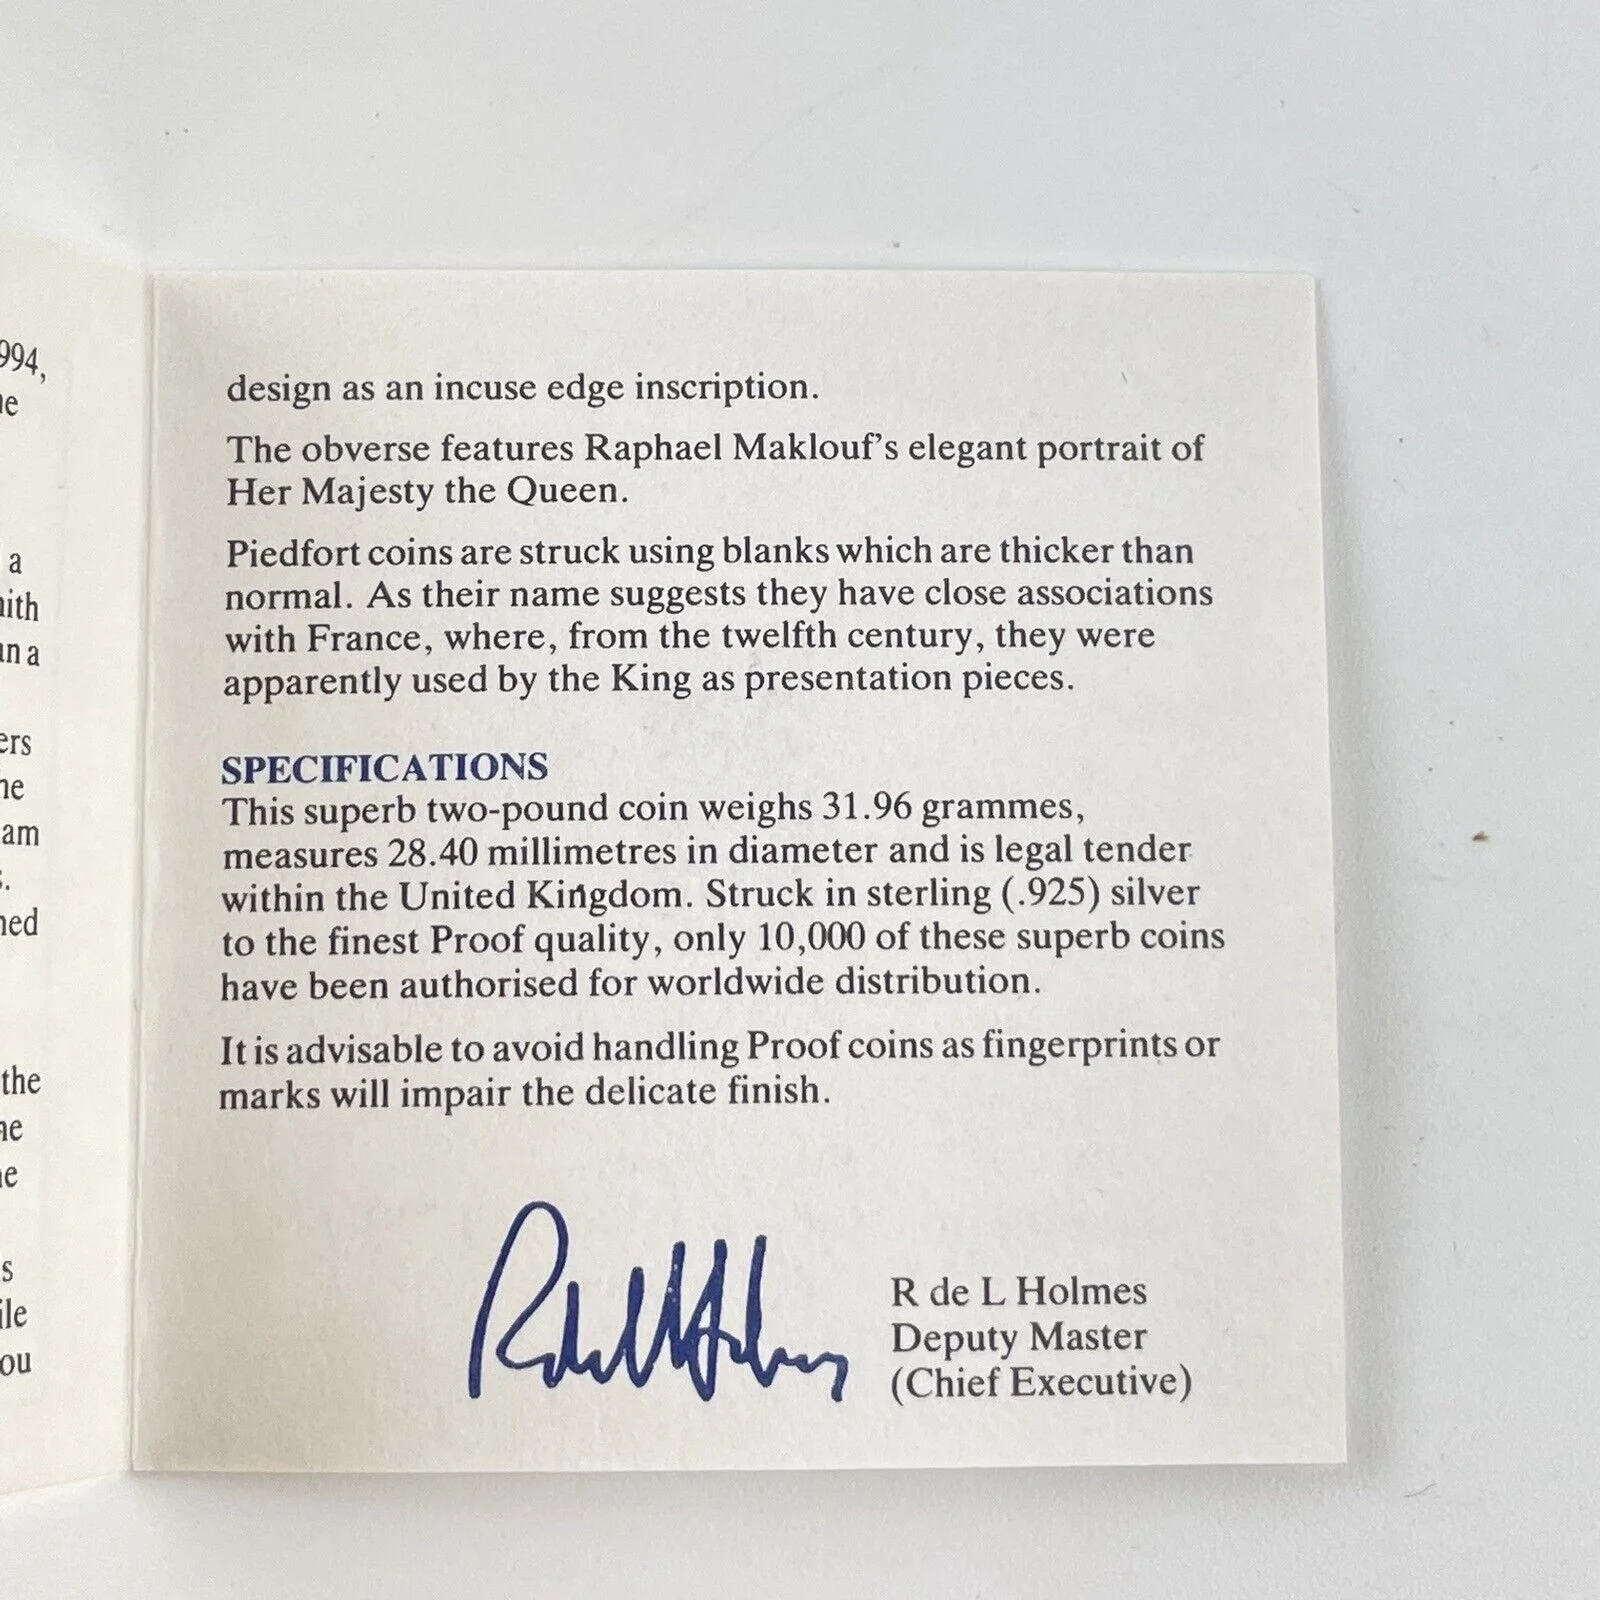 994,
a
the
am
design as an incuse edge inscription.
The obverse features Raphael Maklouf's elegant portrait of
Her Majesty the Queen.
Piedfort coins are struck using blanks which are thicker than
normal. As their name suggests they have close associations
with France, where, from the twelfth century, they were
apparently used by the King as presentation pieces.
SPECIFICATIONS
This superb two-pound coin weighs 31.96 grammes,
measures 28.40 millimetres in diameter and is legal tender
within the United Kingdom. Struck in sterling (.925) silver
to the finest Proof quality, only 10,000 of these superb coins
have been authorised for worldwide distribution.
It is advisable to avoid handling Proof coins as fingerprints or
marks will impair the delicate finish.
R de L Holmes
Deputy Master
(Chief Executive)